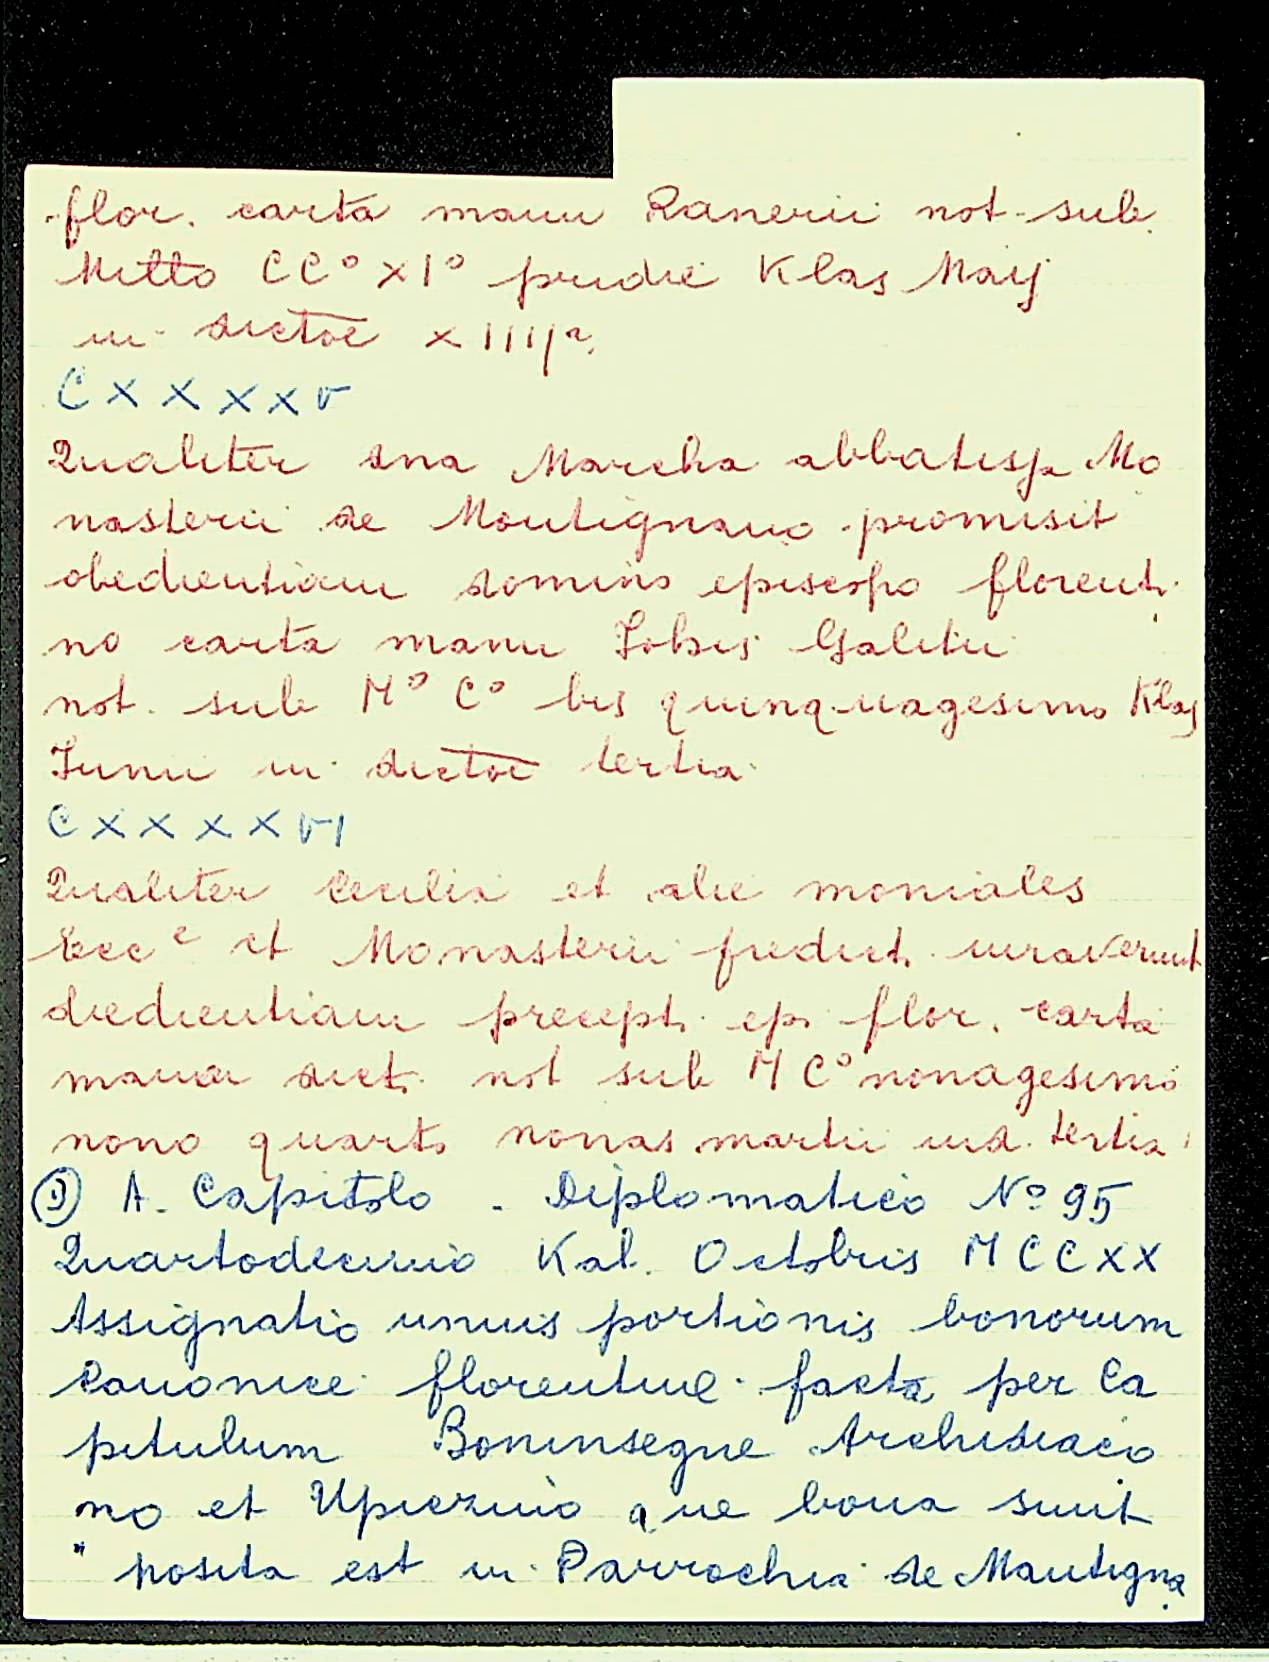 flor. carta manu Ranerii not. sub.
Millo CC° XI° pridie Klas Maij
in dictoe XIIIJa.
CXXXXV
Qualiter dna Marcha abbatissa Mo
nasterii de Montignano promisit
obedientiam domino episcopo florenti
no carta manu Johis Galitii
not. sub M° C° bis quinquagesimo Klas
Junii in dictoe tertia
CXXXXVI
Qualiter Cecilia et alie moniales
Ecce et Monasterii predict. iuraverunt
obedientiam precept. ep. flor. carta
manu dict. not sub M C° nonagesimo
nono quarto nonas martii ind. tertia
9) A. Capitolo - Diplomatico N° 95
Quartodecimo Kal. Octobris MCCXX
Assignatio unius portionis bonorum
Canonice florentine facta per Ca
pitulum Boninsegne Archidiaco
no et Upiczino que bona sunt
" posita est in Parrochia de Mantigna